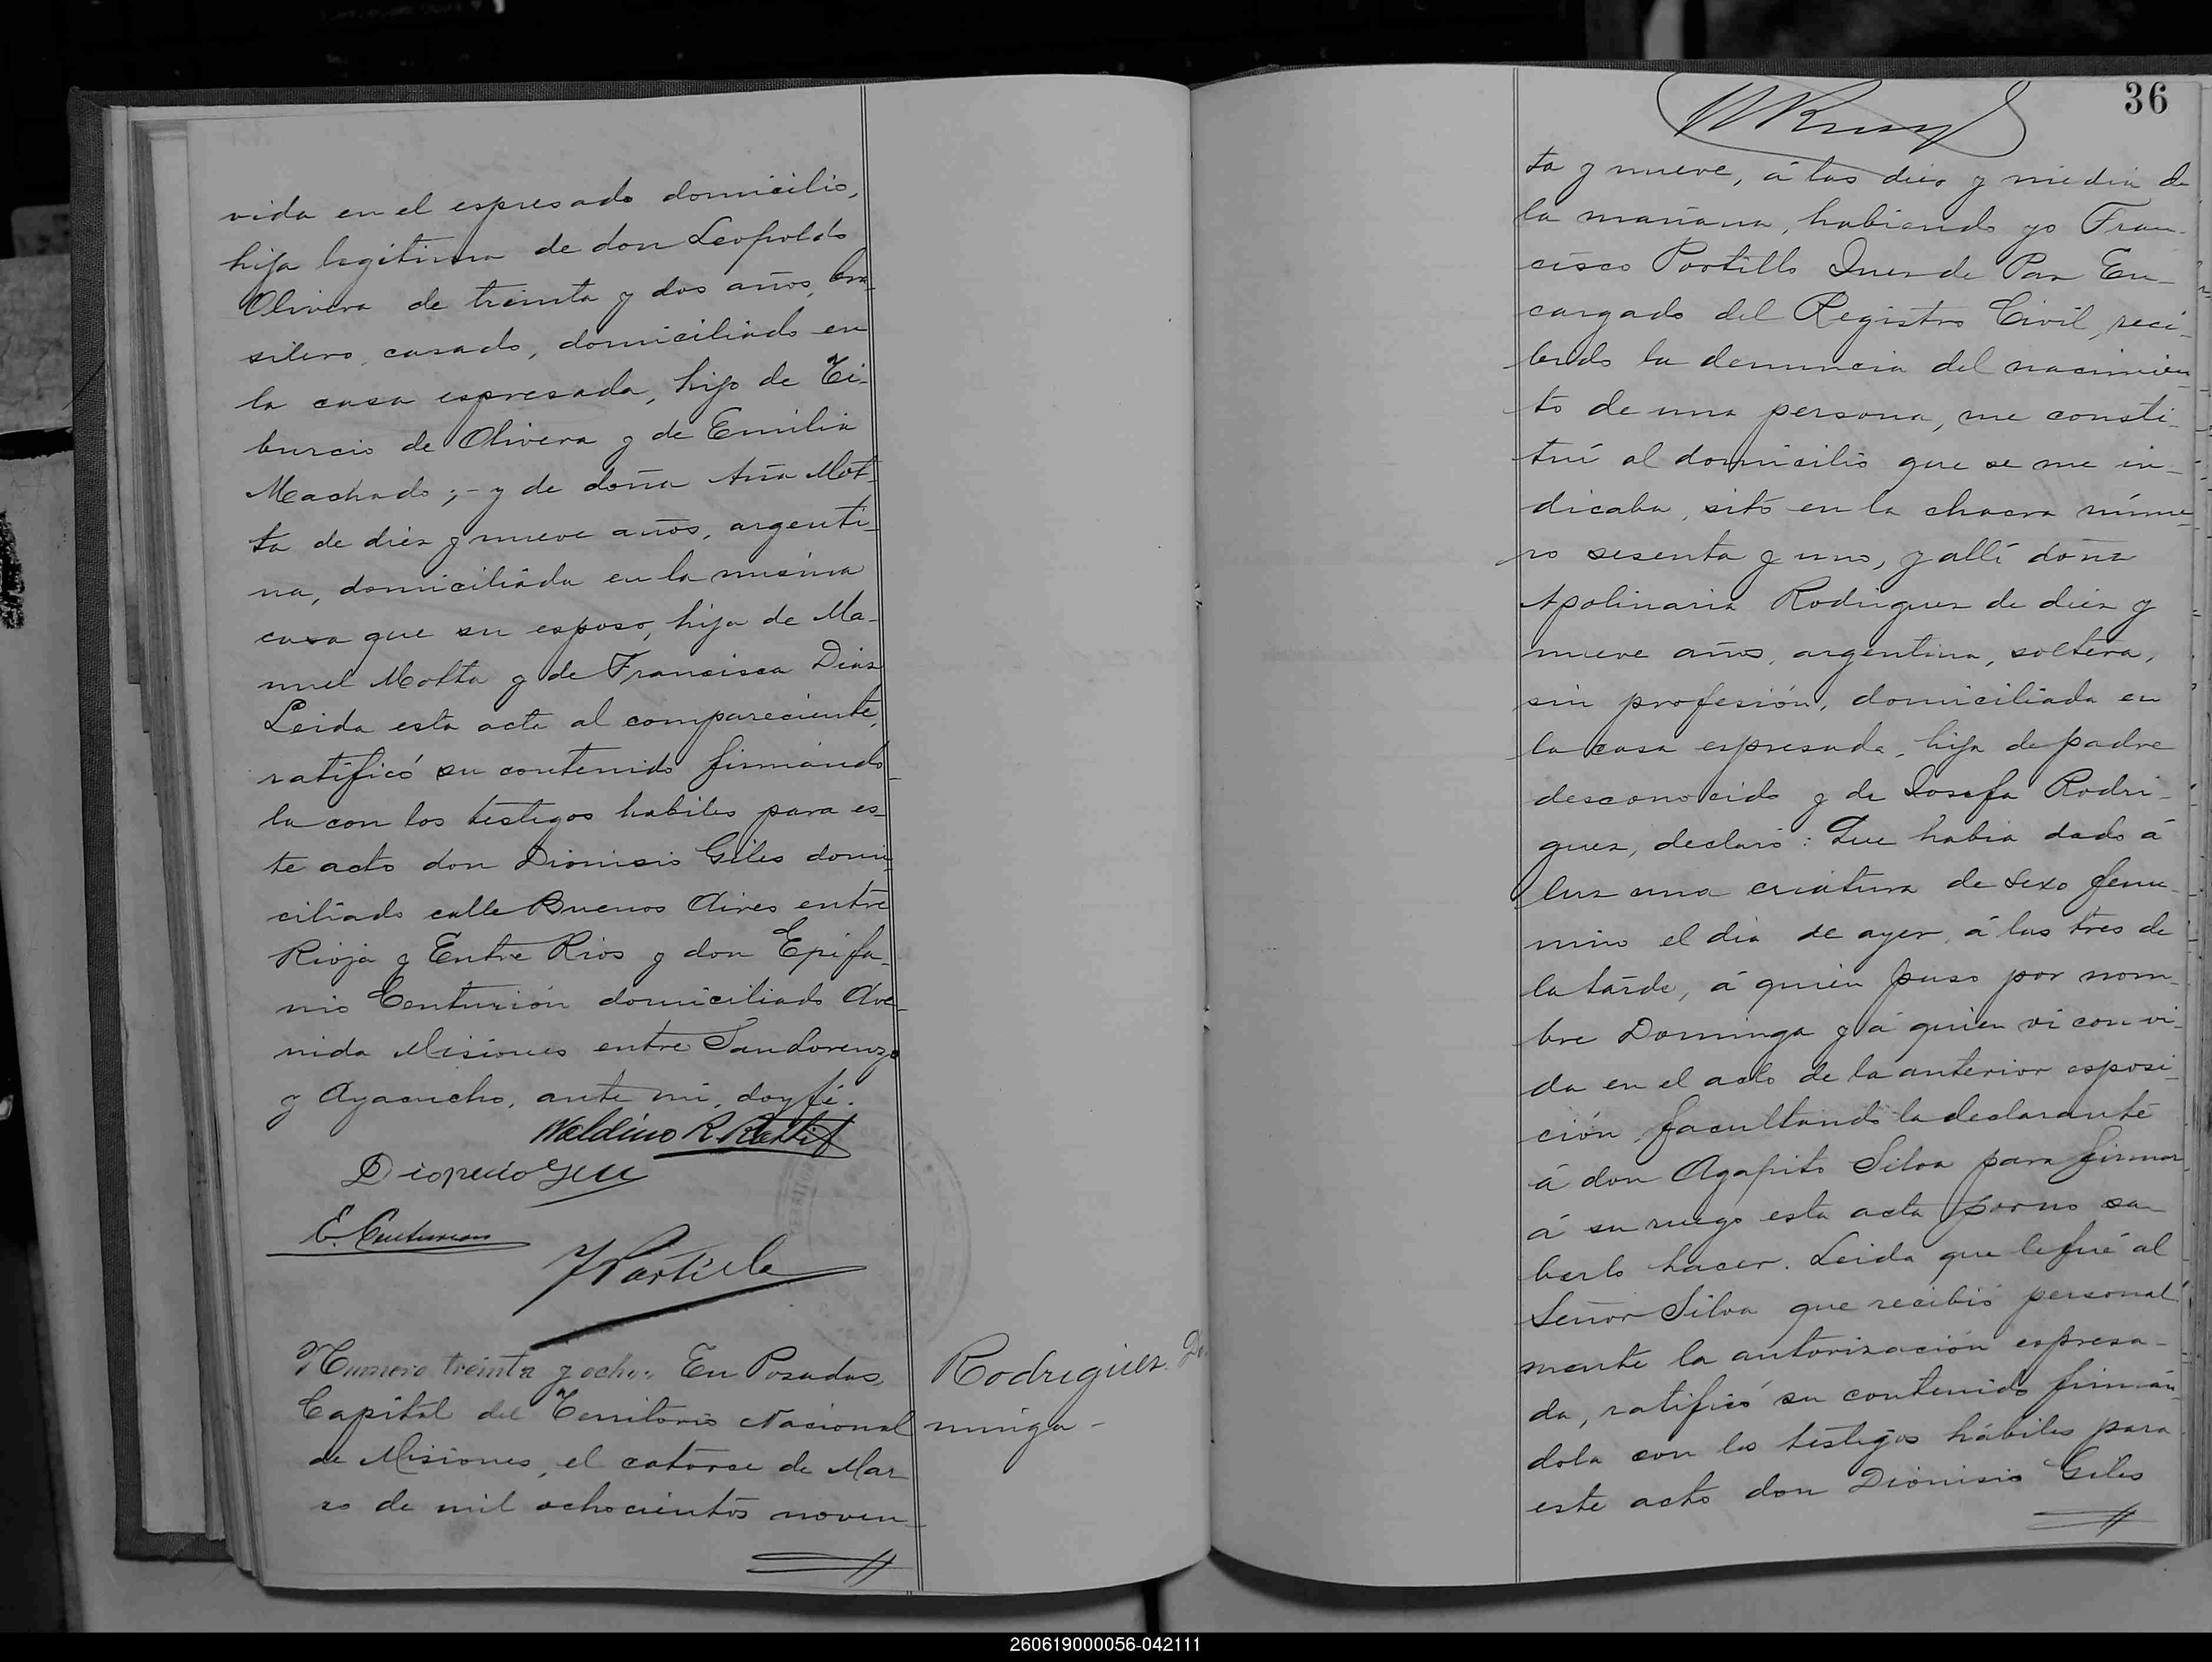 vida en el espresado domicilio,
hija legitima de don Leopoldo
Olivera de treinta y dos años, bra-
silero, casado, domiciliado en
la casa espresada, hijo de Ti-
burcio de Olivera y de Emilia
Machado; - y de doña Ana Mot-
ta de diez y nueve años, argenti-
na, domiciliada en la misma
casa que su esposo, hija de Ma-
nuel Motta y de Francisca Dias
Leida esta acta al compareciente,
ratificó su contenido firmando-
la con los testigos habiles para es-
te acto don Dionisio Giles domi-
ciliado calle Buenos Aires entre
Rioja y Entre Rios y don Epifa-
nio Centurión domiciliado Ave-
nida Misiones entre San Lorenzo
y Ayacucho, ante mi, doy fé.
Waldino R.
E. Centurion
F Portillo
Numero treinta y ocho: En Posadas,
Capital del Territorio Nacional
de Misiones, el catorce de Mar
zo de mil ochocientos noven-
Rodriguez Do
minga -
36
ta y nueve, á las diez y media de
la mañana, habiendo yo Fran-
cisco Portillo Juez de Paz En-
cargado del Registro Civil, reci-
bido la denuncia del nacimien-
to de una persona, me consti-
tuí al domicilio que se me in-
dicaba, sito en la chacra núme-
ro sesenta y uno, y allí doña
Apolinaria Rodriguez de diez y
nueve años, argentina, soltera,
sin profesión, domiciliada en
la casa espresada, hija de padre
desconocido y de Josefa Rodri-
guez, declaró: Que habia dado á
luz una criatura de sexo feme-
nino el dia de ayer, á las tres de
la tarde, á quien puso por nom-
bre Dominga y á quien vi con vi-
da en el acto de la anterior esposi-
ción, facultando la declarante
á don Agapito Silva para firmar
á su ruego esta acta por no sa-
berlo hacer. Leida que le fué al
Señor Silva que recibió personal
mente la autorización espresa-
da, ratificó su contenido firmán-
dola con los testigos hábiles para
este acto don Dionisio Giles
260619000056-042111